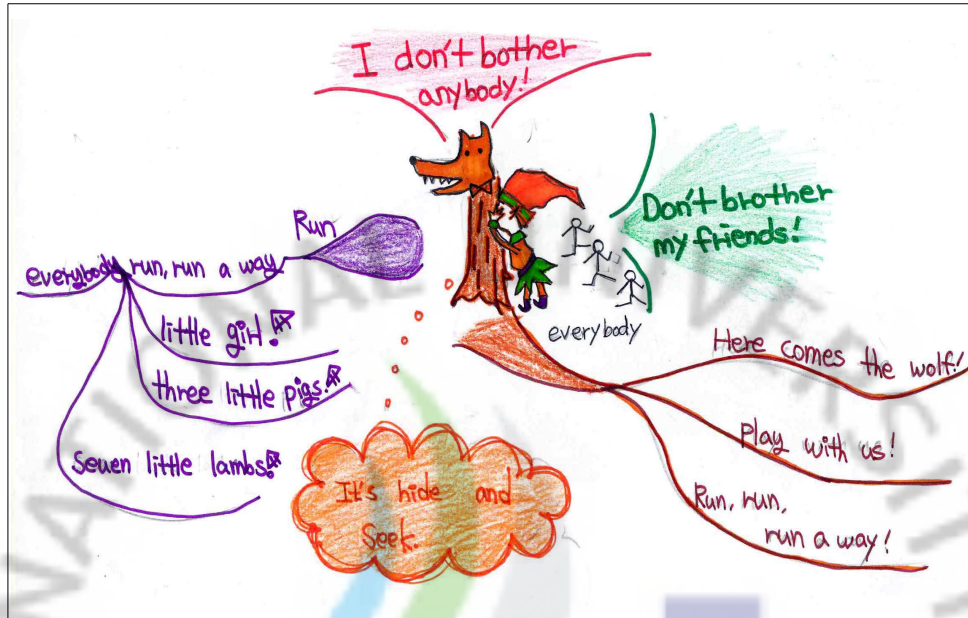 I don't bother
anybody!
Don't brother
my friends!
Run
everybody run, run a way
little girl!
three little pigs!
Seven little lambs!
everybody
Here comes the wolf!
Play with us!
Run, run,
run a way!
It's hide and
Seek.